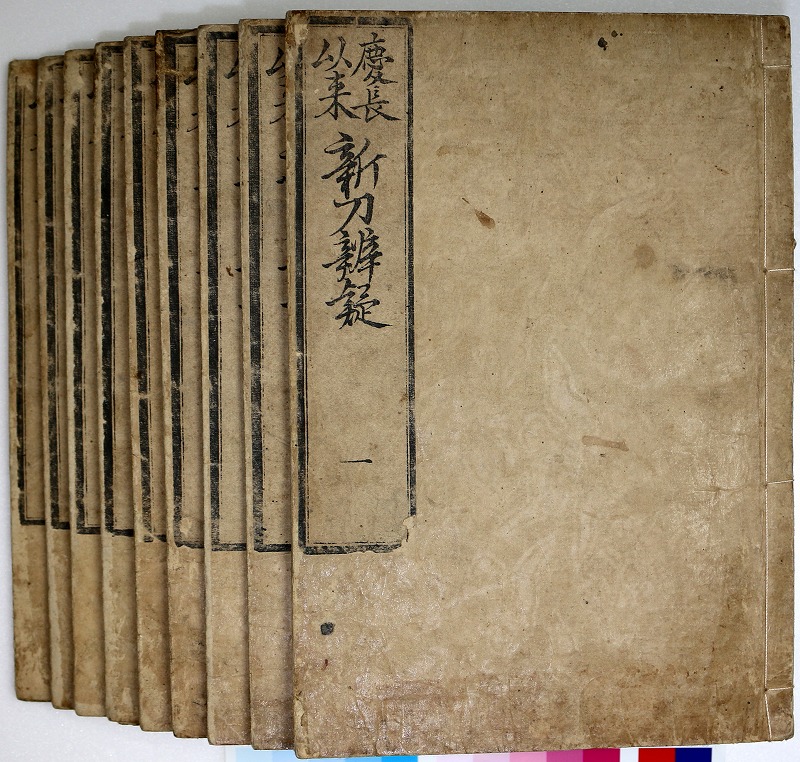 慶長
以来
新刀辨疑
一